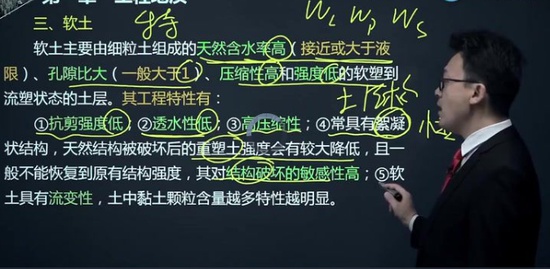 三、软土
软土主要由细粒土组成的天然含水率高（接近或大于液
限）、孔隙比大（一般大于1）、压缩性高和强度低的软塑到
流塑状态的土层。其工程特性有：
①抗剪强度低；②透水性低；③高压缩性；④常具有絮凝
状结构，天然结构被破坏后的重塑土强度会有较大降低，且一
般不能恢复到原有结构强度，其对结构破坏的敏感性高；⑤软
土具有流变性，土中黏土颗粒含量越多特性越明显。
WL WP WS